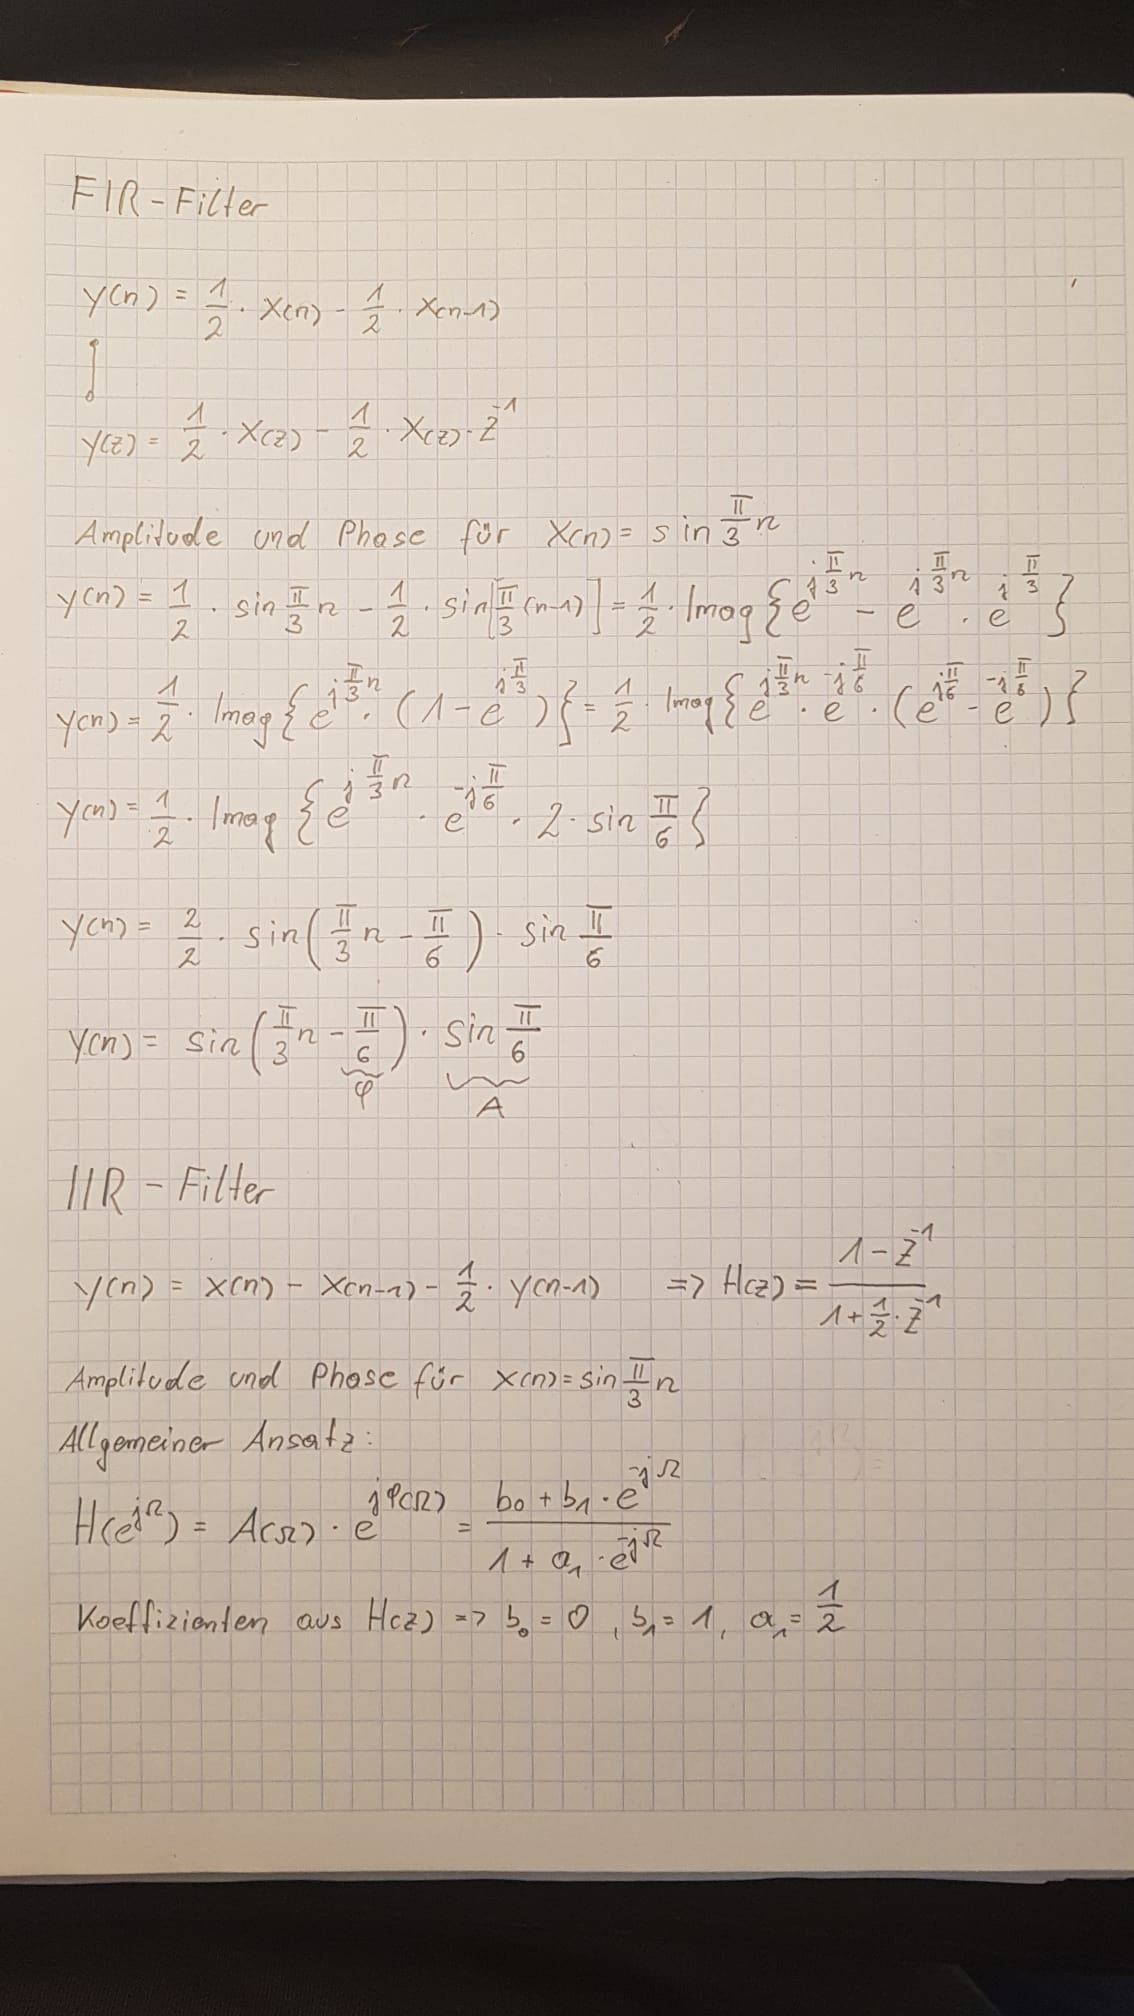 FIR-Filter
y(n) = 1/2 · x(n) - 1/2 · x(n-1)
Y(z) = 1/2 · X(z) - 1/2 · X(z) · z^-1
Amplitude und Phase für x(n) = sin π/3 n
y(n) = 1/2 · sin π/3 n - 1/2 · sin[π/3 (n-1)] = 1/2 · Imag{e^(j π/3 n) - e^(j π/3 n) · e^(j π/3)}
y(n) = 1/2 · Imag{e^(j π/3 n) · (1 - e^(j π/3))} = 1/2 · Imag{e^(j π/3 n) · e^(-j π/6) · (e^(j π/6) - e^(-j π/6))}
y(n) = 1/2 · Imag{e^(j π/3 n) · e^(-j π/6) · 2 · sin π/6}
y(n) = 2/2 · sin(π/3 n - π/6) · sin π/6
y(n) = sin(π/3 n - π/6) · sin π/6
φ A
IIR-Filter
y(n) = x(n) - x(n-1) - 1/2 · y(n-1) => H(z) = (1 - z^-1)/(1 + 1/2 · z^-1)
Amplitude und Phase für x(n) = sin π/3 n
Allgemeiner Ansatz:
H(e^(jΩ)) = A(Ω) · e^(jφ(Ω)) = (b0 + b1 · e^(-jΩ))/(1 + a1 · e^(-jΩ))
Koeffizienten aus H(z) => b0 = 0, b1 = 1, a1 = 1/2